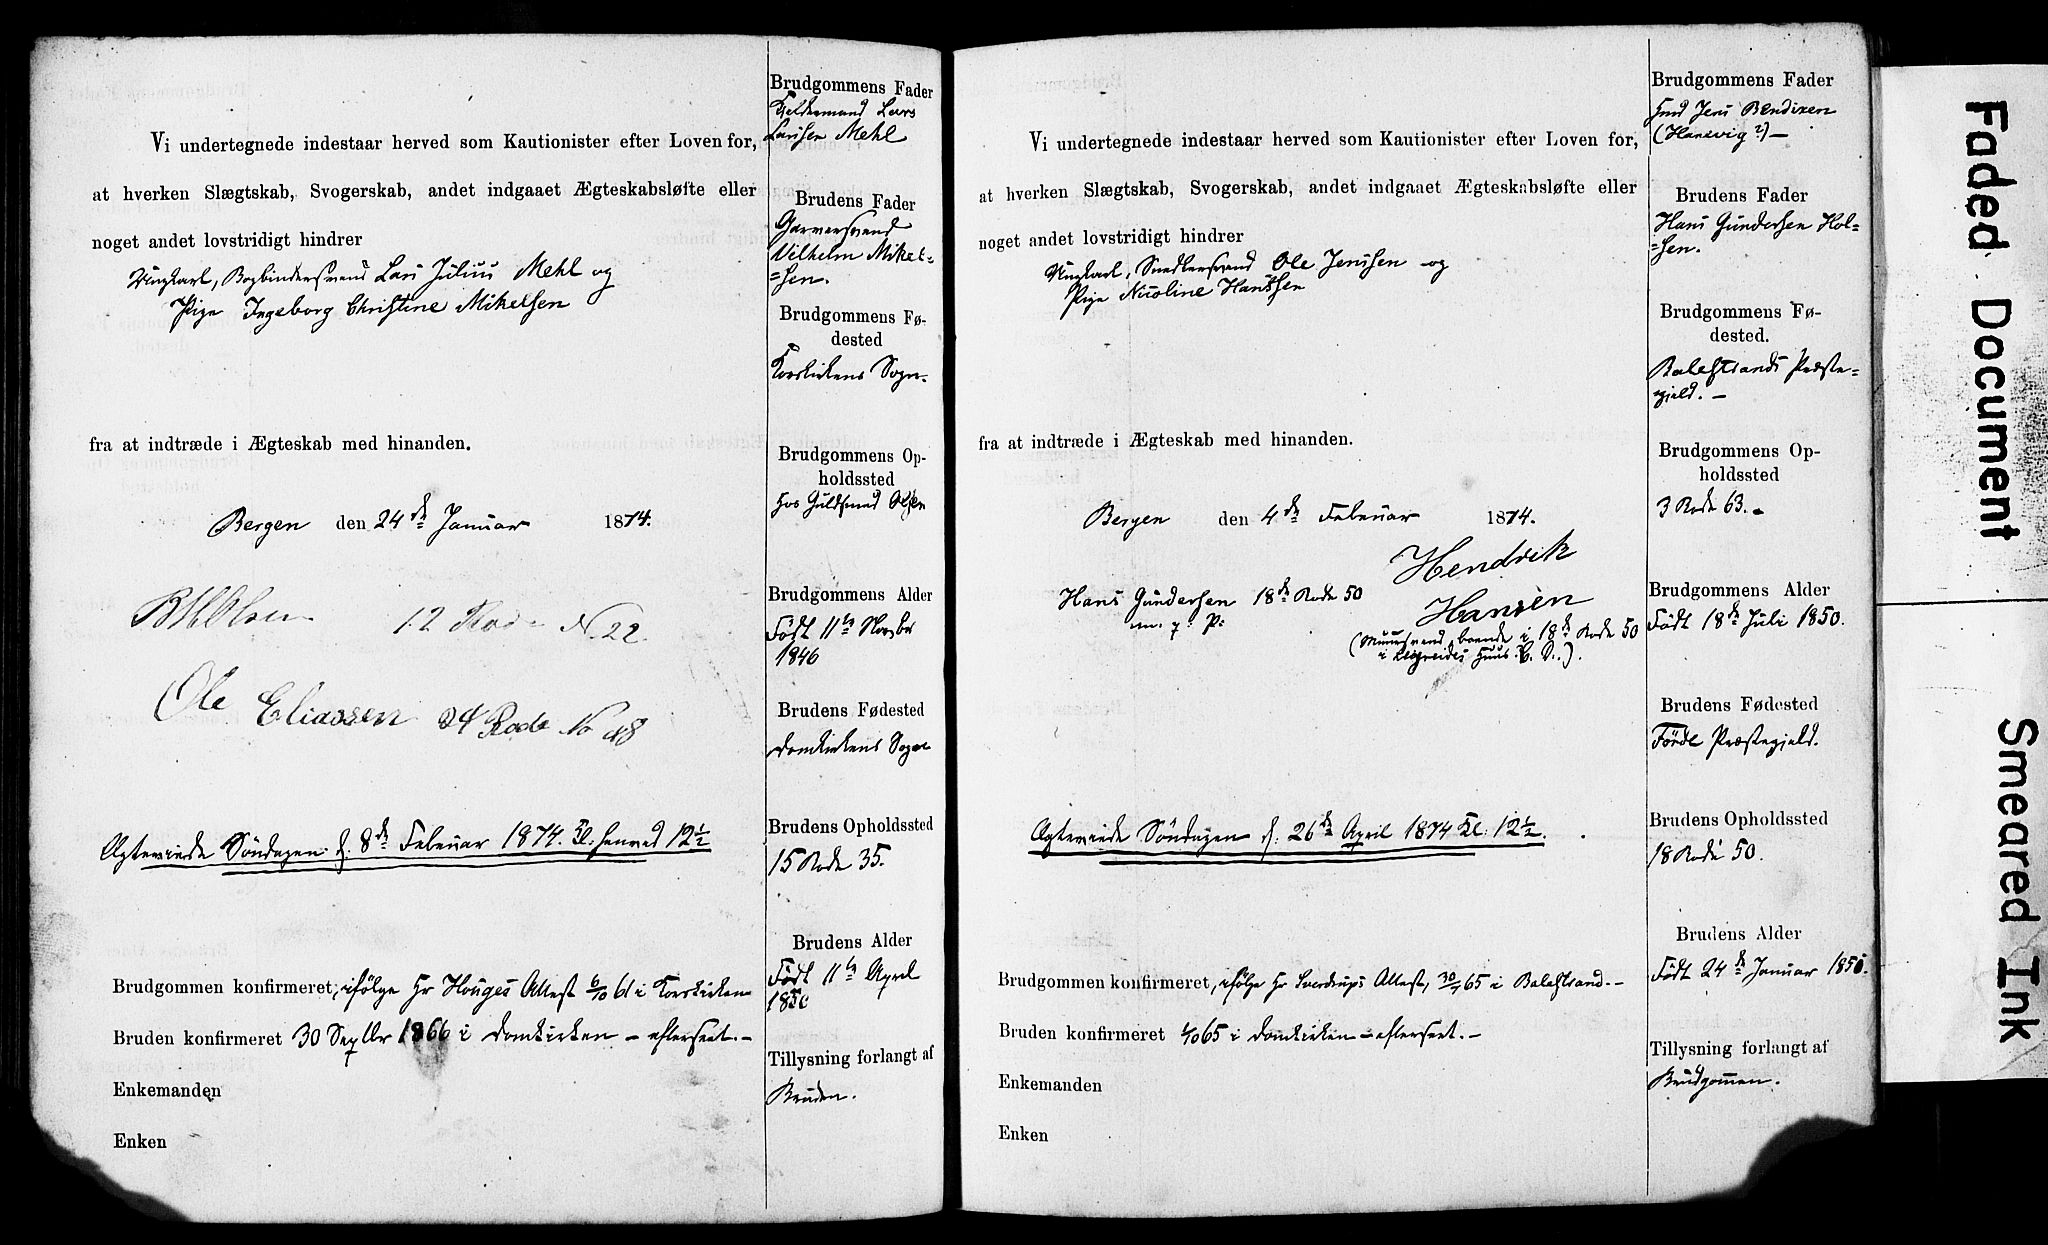 Vi undertegnede indestaar herved som Kautionister efter Loven for,
at hverken Slægtskab, Svogerskab, andet indgaaet Ægteskabsløfte eller
noget andet lovstridigt hindrer
Ungkarl, Bogbindersvend Lars Julius Mehl og
Pige Ingeborg Christine Mikelsen
fra at indtræde i Ægteskab med hinanden.
Bergen den 24de Januar 1874.
Olsen 12 Rode N. 22.
Ole Eliassen 24 Rode No 48
Agterveide Søndagen d. 8de Februar 1874. Kl. 12½
Brudgommen konfirmeret, ifølge Hr Houges Attest 6/10 61 i Korskirken
Bruden konfirmeret 30 Septbr 1866 i Domkirken – efterseet. –
Enkemanden
Enken
Brudgommens Fader
Lars
Larsen Mehl
Brudens Fader
Garversvend
Vilhelm Mikel=
=sen.
Brudgommens Fø-
dested
Korskirkens Sogn.
Brudgommens Op-
holdssted
Hos Guldsmed Olsen
Brudgommens Alder
Født 11te Novbr
1846
Brudens Fødested
Domkirkens Sogn
Brudens Opholdssted
15 Rode 35.
Brudens Alder
Født 11te April
1850
Tillysning forlangt af
Bruden.
Vi undertegnede indestaar herved som Kautionister efter Loven for,
at hverken Slægtskab, Svogerskab, andet indgaaet Ægteskabsløfte eller
noget andet lovstridigt hindrer
Ungkarl, Snedkersvend Ole Jenssen og
Pige Nicoline Hanssen
fra at indtræde i Ægteskab med hinanden.
Bergen den 4de Februar 1874.
Hendrik
Hans Gundersen 18de Rode 50
Hansen
m. f. P.
(Muursvend, boende i 18de Rode 50
i Huus)
Agterveide Søndagen d. 26de April 1874 Kl. 12½.
Brudgommen konfirmeret, ifølge Hr Sverdrups Attest, 65 i Balestrand. –
Bruden konfirmeret 1/10 65 i Domkirken – efterseet. –
Enkemanden
Enken
Brudgommens Fader
Hmd Jens Bendixen
(Hanevig?) –
Brudens Fader
Hans Gundersen Hol=
=sen.
Brudgommens Fø-
dested.
Balestrands Præste=
gjeld. –
Brudgommens Op-
holdssted
3 Rode 63. –
Brudgommens Alder
Født 18de Juli 1850.
Brudens Fødested
Førde Præstegjeld.
Brudens Opholdssted
18 Rode 50.
Brudens Alder
Født 24de Januar 1850.
Tillysning forlangt af
Brudgommen.
Faded Document
Smeared Ink